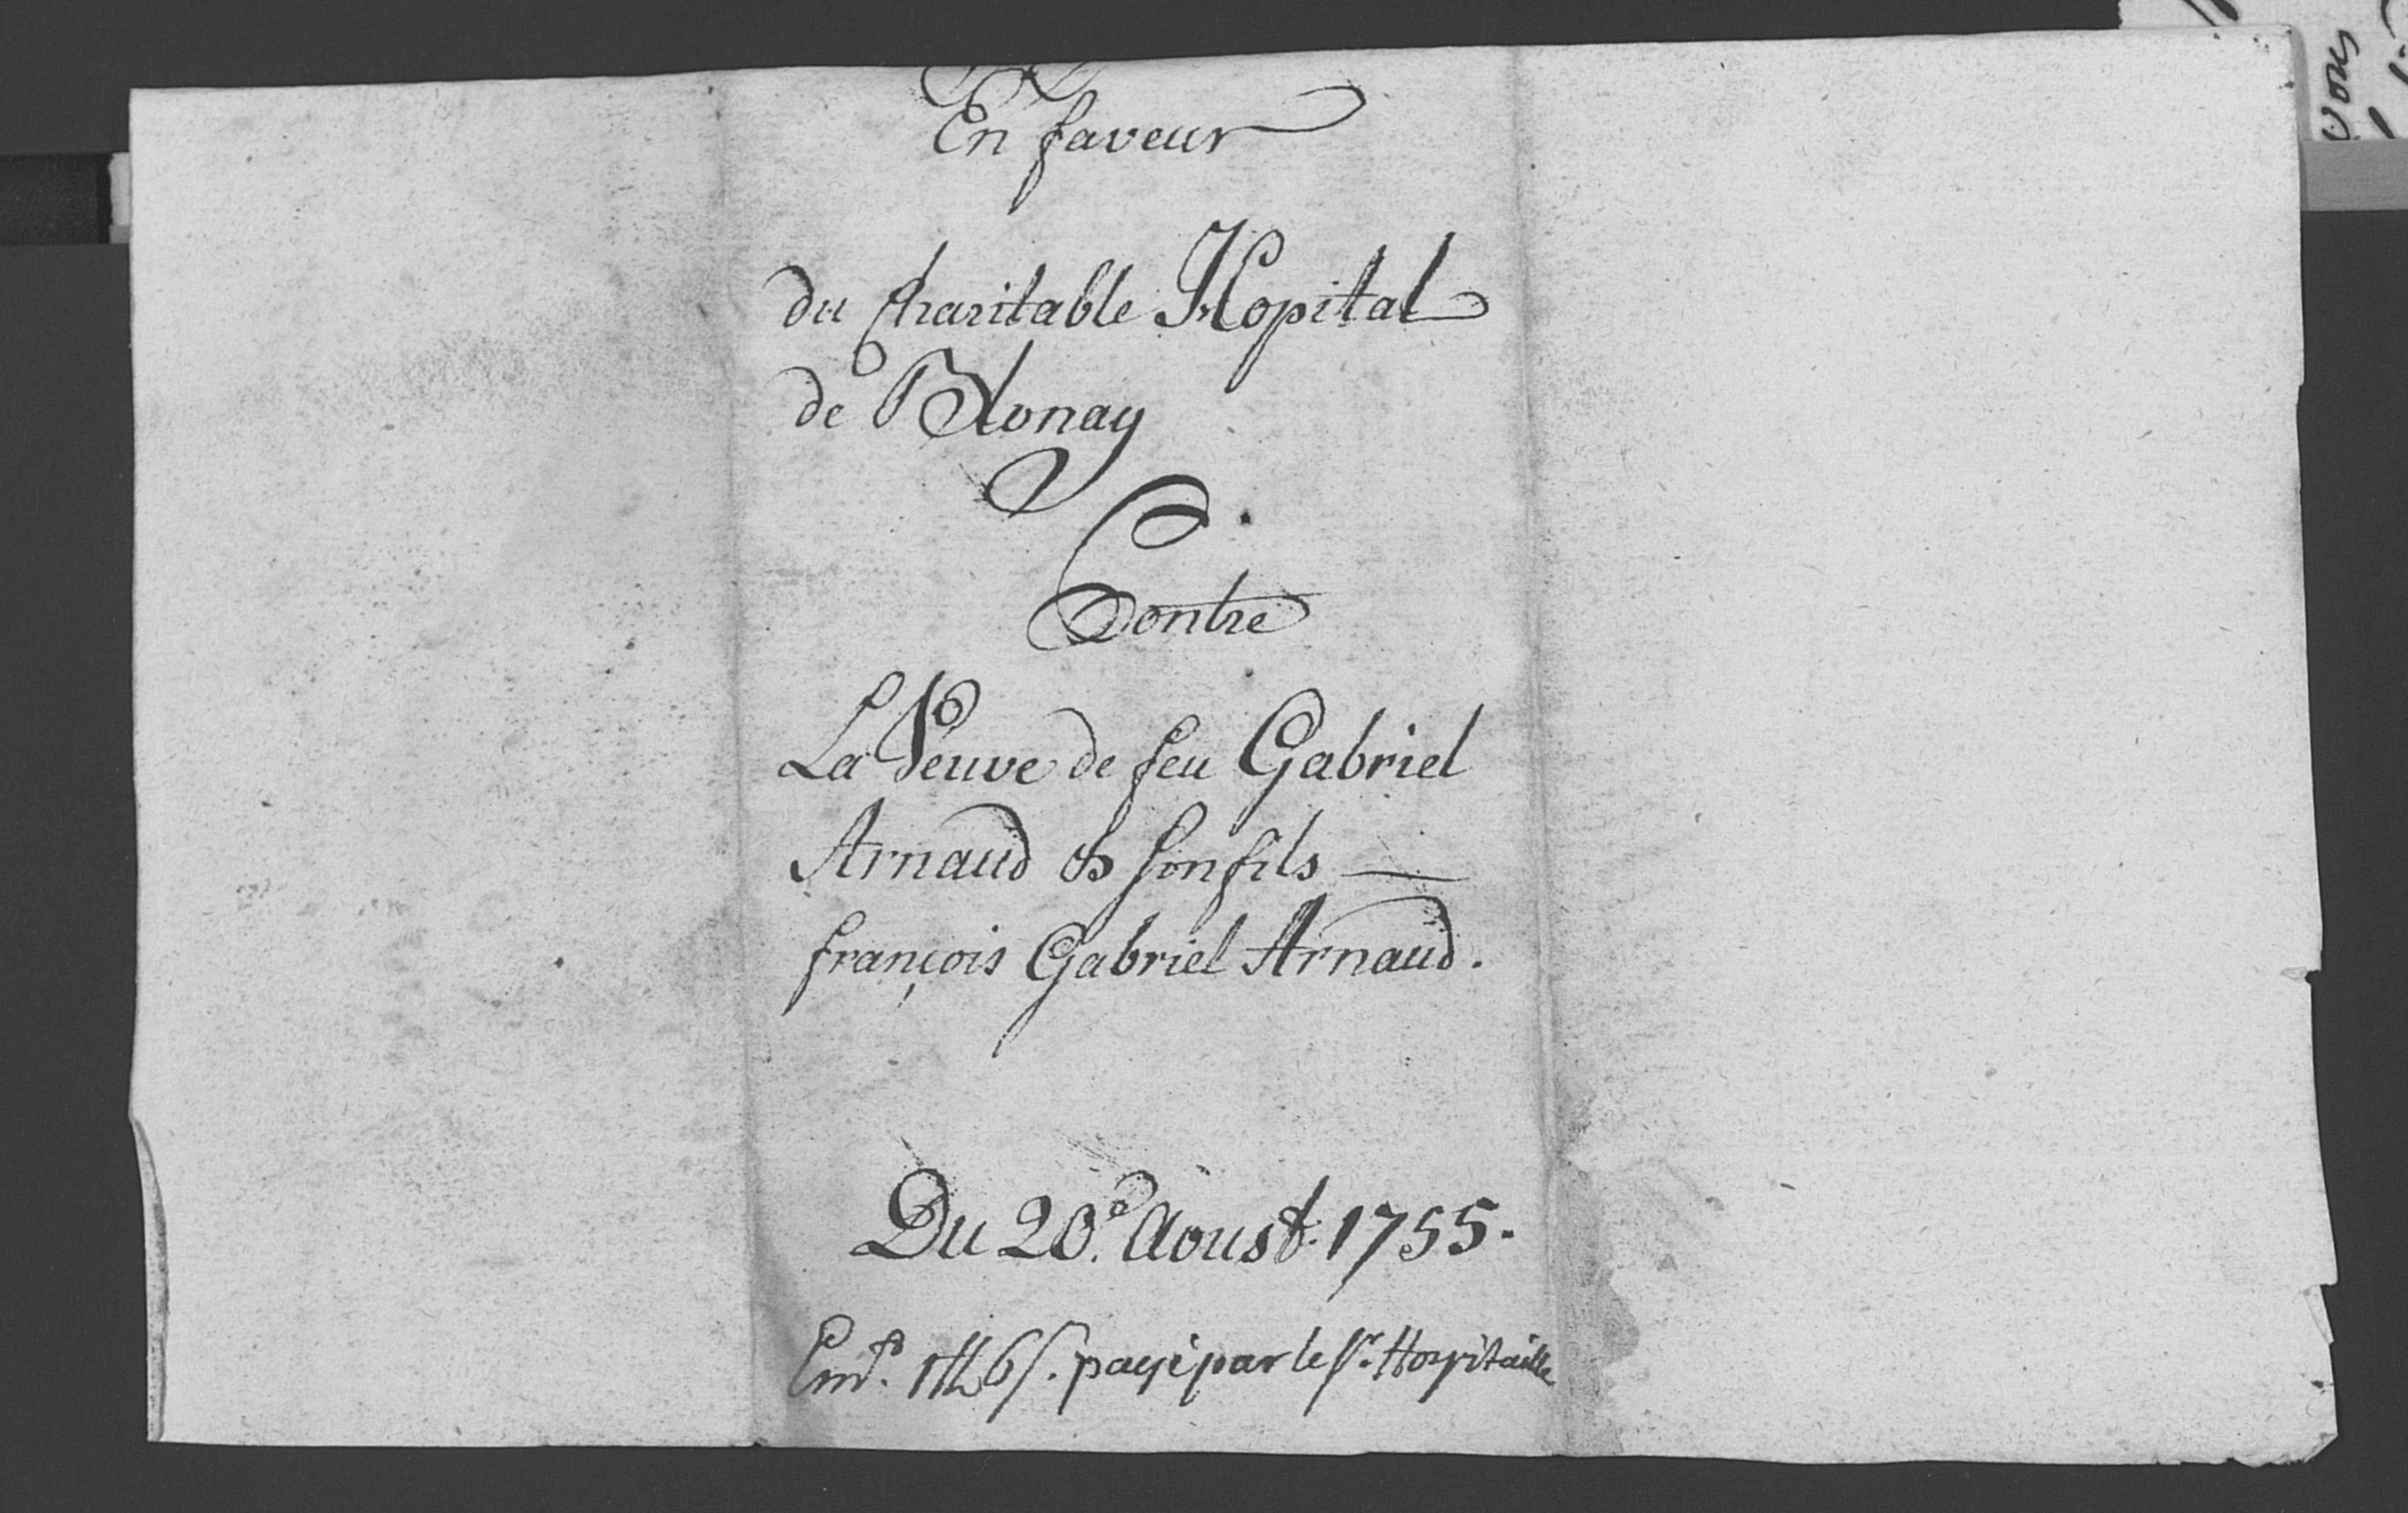 En faveur
du Charitable Hopital
de Blonay
Contre
La Veuve de feu Gabriel
Arnaud & son fils
françois Gabriel Arnaud.
Du 20.e Aoust 1755.
6 s. payé par le Sr. Hospitaille
vous